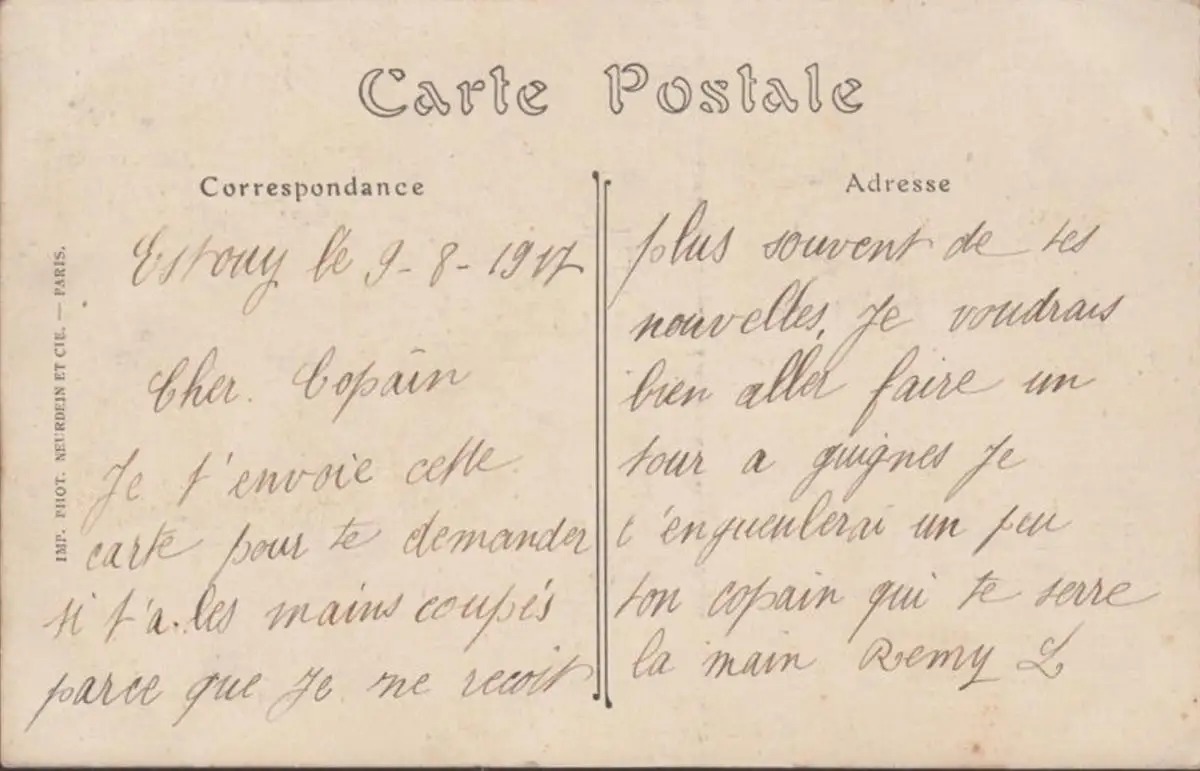 Carte Postale
Correspondance
Adresse
IMP. PHOT. NEURDEIN ET CIE. — PARIS.
Estouy le 9-8-1917
Cher. Copain
Je t'envoie cette
carte pour te demander
si t'a. les mains coupés
parce que Je ne recoit
plus souvent de tes
nouvelles, Je voudrais
bien aller faire un
tour a guignes Je
t'engueulerai un peu
ton copain qui te serre
la main Remy L